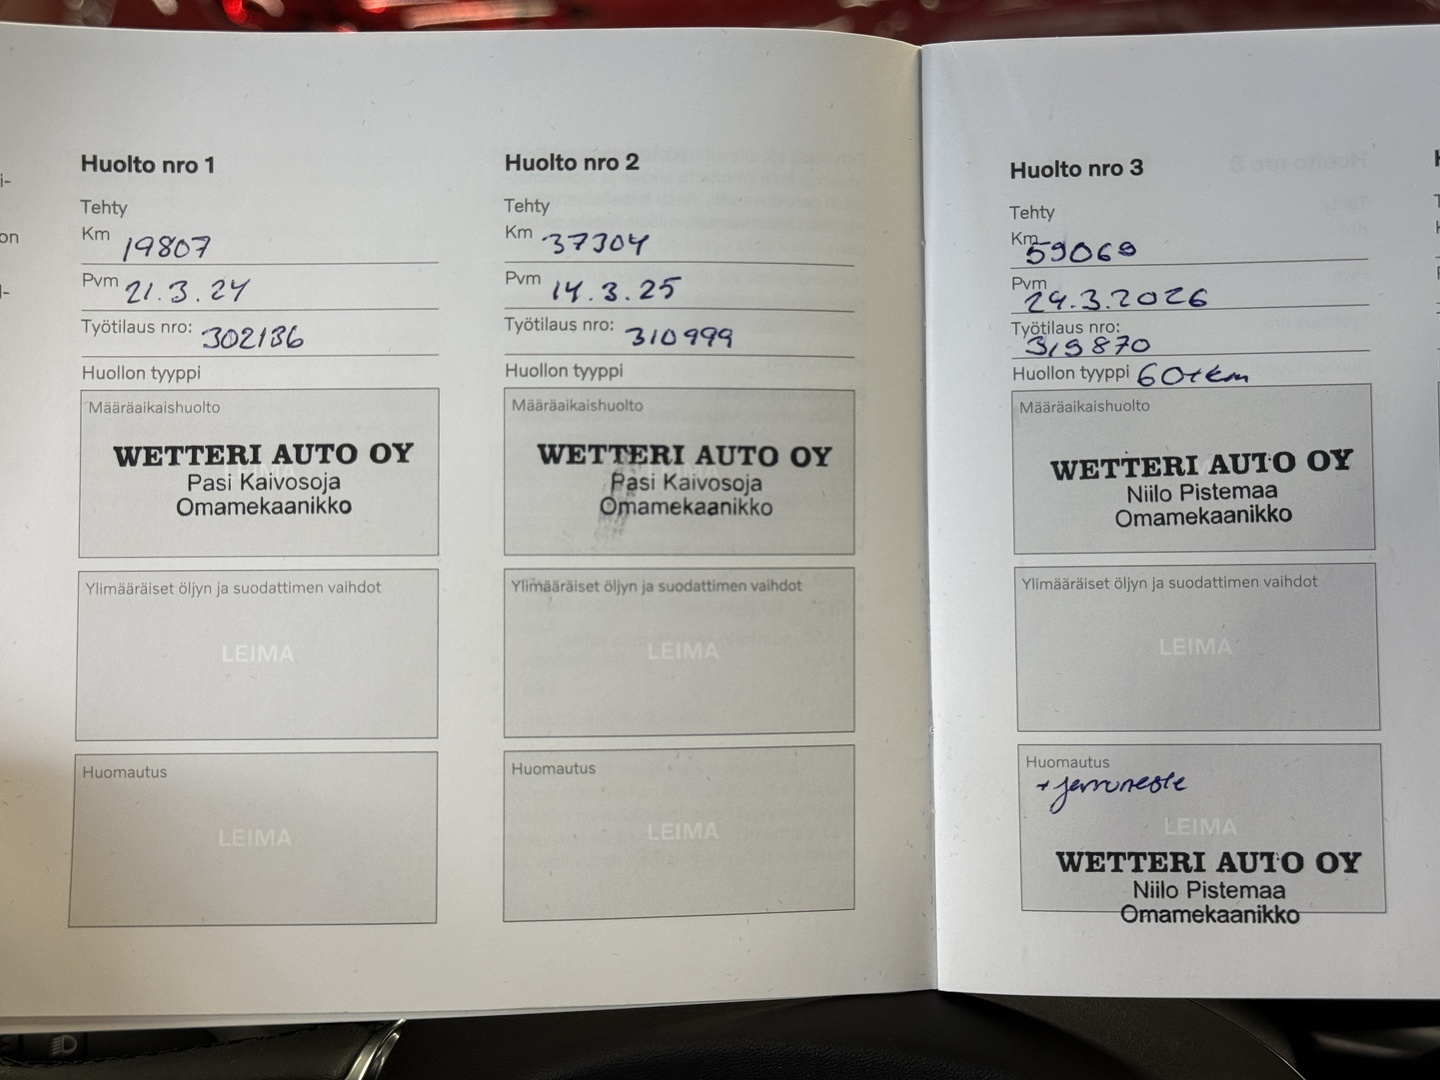 Huolto nro 1
Tehty
Km 19807
Pvm 21.3.24
Työtilaus nro: 302136
Huollon tyyppi
Määräaikaishuolto
WETTERI AUTO OY
Pasi Kaivosoja
Omamekaanikko
Ylimääräiset öljyn ja suodattimen vaihdot
LEIMA
Huomautus
LEIMA
Huolto nro 2
Tehty
Km 37304
Pvm 14.3.25
Työtilaus nro: 310999
Huollon tyyppi
Määräaikaishuolto
WETTERI AUTO OY
Pasi Kaivosoja
Omamekaanikko
Ylimääräiset öljyn ja suodattimen vaihdot
LEIMA
Huomautus
LEIMA
Huolto nro 3
Tehty
Km 59069
Pvm 24.3.2026
Työtilaus nro:
319870
Huollon tyyppi 60tkm
Määräaikaishuolto
WETTERI AUTO OY
Niilo Pistemaa
Omamekaanikko
Ylimääräiset öljyn ja suodattimen vaihdot
LEIMA
Huomautus
+ jarruneste
LEIMA
WETTERI AUTO OY
Niilo Pistemaa
Omamekaanikko